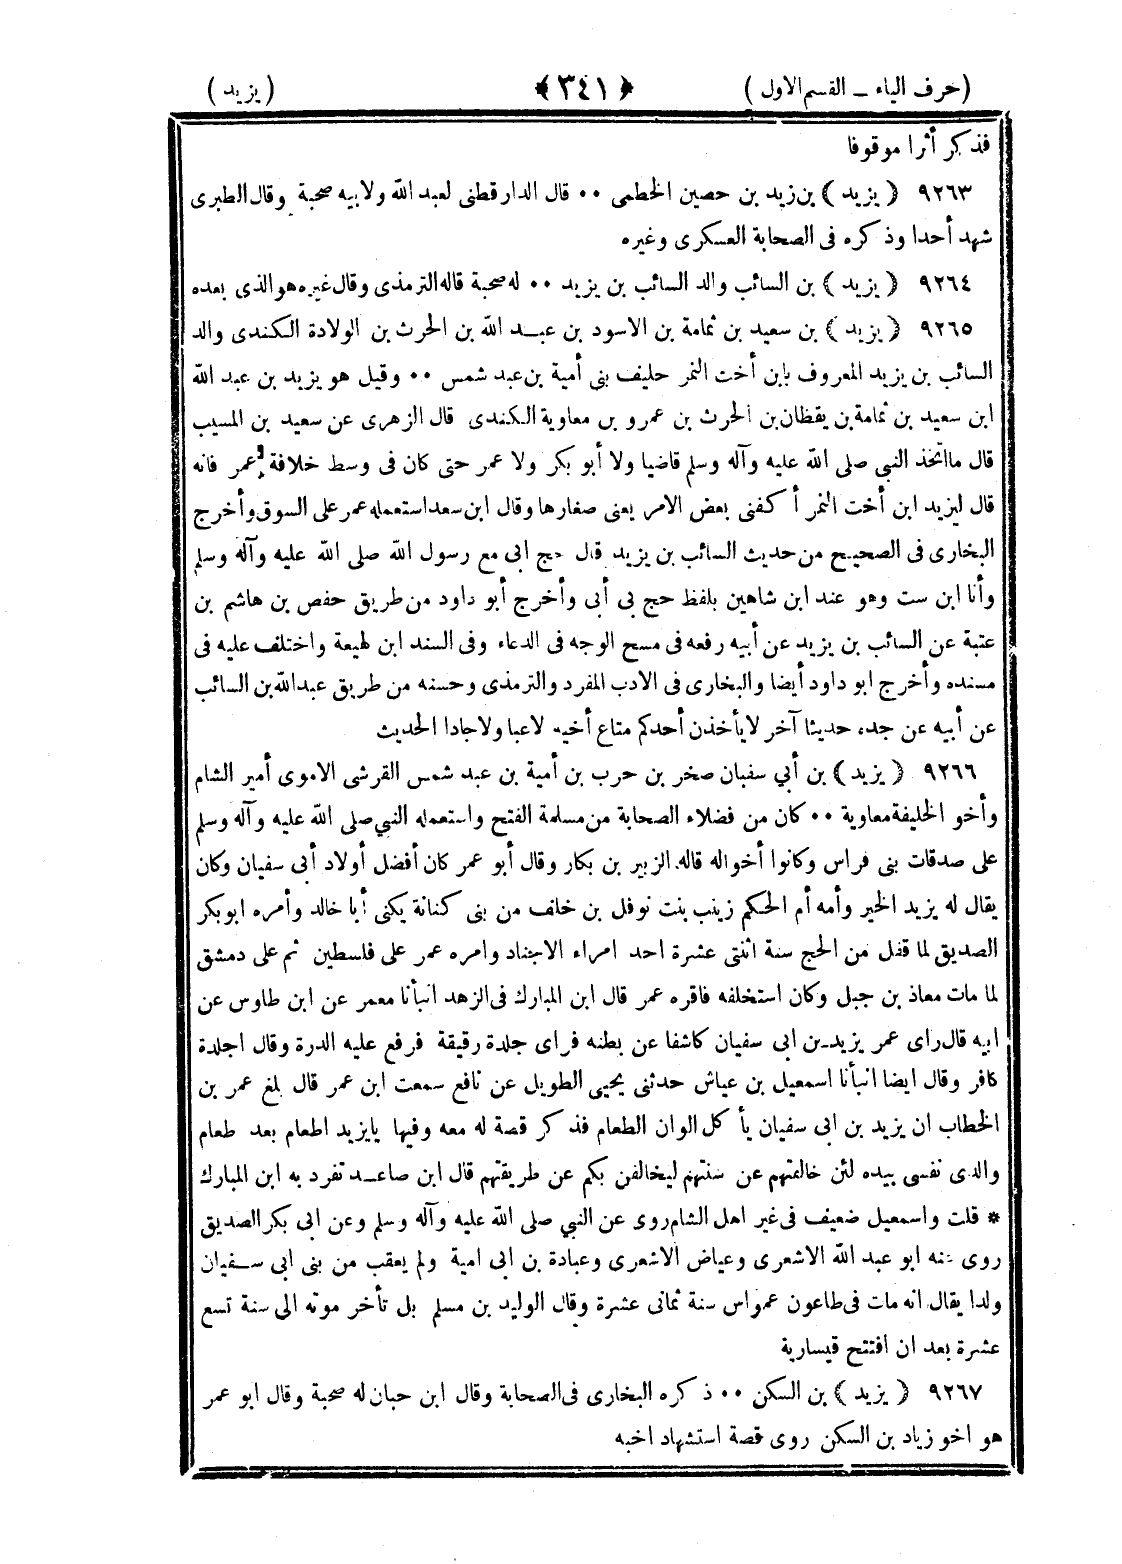 (حرف الياء ــ القسم الاول) ﴿٣٤١﴾ (يزيد)
فذكر أثرا موقوفا
٩٢٦٣ ﴿يزيد﴾ بن زيد بن حصين الخطمى ٠٠ قال الدارقطنى لعبد الله ولابيه صحبة وقال الطبرى
شهد أحدا وذكره فى الصحابة العسكرى وغيره
٩٢٦٤ ﴿يزيد﴾ بن السائب والد السائب بن يزيد ٠٠ له صحبة قاله الترمذى وقال غيره هو الذى بعده
٩٢٦٥ ﴿يزيد﴾ بن سعيد بن ثمامة بن الاسود بن عبد الله بن الحرث بن الولادة الكندى والد
السائب بن يزيد المعروف بابن أخت النمر حليف بنى أمية بن عبد شمس ٠٠ وقيل هو يزيد بن عبد الله
ابن سعيد بن ثمامة بن يقظان بن الحرث بن عمرو بن معاوية الكندى قال الزهرى عن سعيد بن المسيب
قال ما اتخذ النبي صلى الله عليه وآله وسلم قاضيا ولا أبو بكر ولا عمر حتى كان فى وسط خلافة عمر فانه
قال ليزيد ابن أخت النمر أكفنى بعض الامر يعنى صغارها وقال ابن سعد استعمله عمر على السوق وأخرج
البخارى فى الصحيح من حديث السائب بن يزيد قال حج ابى مع رسول الله صلى الله عليه وآله وسلم
وأنا ابن ست وهو عند ابن شاهين بلفظ حج بى أبى وأخرج أبو داود من طريق حفص بن هاشم بن
عتبة عن السائب بن يزيد عن أبيه رفعه فى مسح الوجه فى الدعاء وفى السند ابن لهيعة واختلف عليه فى
مسنده وأخرج ابو داود أيضا والبخارى فى الادب المفرد والترمذى وحسنه من طريق عبدالله بن السائب
عن أبيه عن جده حديثا آخر لا يأخذن أحدكم متاع أخيه لاعبا ولا جادا الحديث
٩٢٦٦ ﴿يزيد﴾ بن أبي سفيان صخر بن حرب بن أمية بن عبد شمس القرشى الاموى أمير الشام
وأخو الخليفة معاوية ٠٠ كان من فضلاء الصحابة من مسلمة الفتح واستعمله النبي صلى الله عليه وآله وسلم
على صدقات بنى فراس وكانوا أخواله قاله الزبير بن بكار وقال أبو عمر كان أفضل أولاد أبى سفيان وكان
يقال له يزيد الخير وأمه أم الحكم زينب بنت نوفل بن خلف من بنى كنانة يكنى أبا خالد وأمره ابو بكر
الصديق لما قفل من الحج سنة اثنتى عشرة احد امراء الاجناد وامره عمر على فلسطين ثم على دمشق
لما مات معاذ بن جبل وكان استخلفه فاقره عمر قال ابن المبارك فى الزهد انبأنا معمر عن ابن طاوس عن
ابيه قال راى عمر يزيد بن ابى سفيان كاشفا عن بطنه فراى جلدة رقيقة فرفع عليه الدرة وقال اجلدة
كافر وقال ايضا انبأنا اسمعيل بن عياش حدثنى يحيى الطويل عن نافع سمعت ابن عمر قال بلغ عمر بن
الخطاب ان يزيد بن ابى سفيان يأكل الوان الطعام فذكر قصة له معه وفيها يايزيد اطعام بعد طعام
والذى نفسى بيده لئن خالفتهم عن سنتهم ليخالفن بكم عن طريقتهم قال ابن صاعد تفرد به ابن المبارك
* قلت واسمعيل ضعيف فى غير اهل الشام روى عن النبي صلى الله عليه وآله وسلم وعن ابى بكر الصديق
روى عنه ابو عبد الله الاشعرى وعياض الاشعرى وعبادة بن ابى امية ولم يعقب من بنى ابى سفيان
ولدا يقال انه مات فى طاعون عمواس سنة ثمانى عشرة وقال الوليد بن مسلم بل تأخر موته الى سنة تسع
عشرة بعد ان افتتح قيسارية
٩٢٦٧ ﴿يزيد﴾ بن السكن ٠٠ ذكره البخارى فى الصحابة وقال ابن حبان له صحبة وقال ابو عمر
هو اخو زياد بن السكن روى قصة استشهاد اخيه